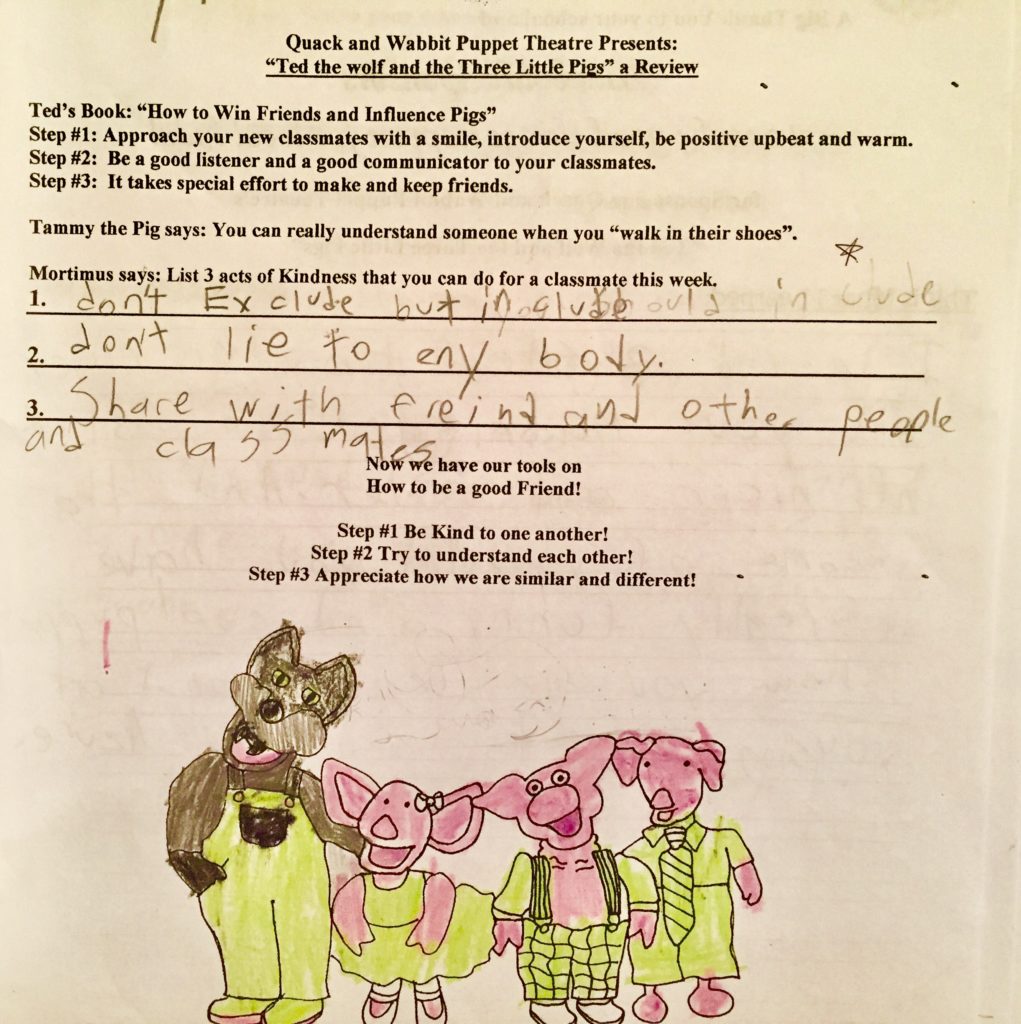 Quack and Wabbit Puppet Theatre Presents:
“Ted the wolf and the Three Little Pigs” a Review
Ted’s Book: “How to Win Friends and Influence Pigs”
Step #1: Approach your new classmates with a smile, introduce yourself, be positive upbeat and warm.
Step #2: Be a good listener and a good communicator to your classmates.
Step #3: It takes special effort to make and keep friends.
Tammy the Pig says: You can really understand someone when you “walk in their shoes”.
Mortimus says: List 3 acts of Kindness that you can do for a classmate this week.
1. don't Exclude but include in clude
2. don't lie to eny body.
3. Share with freind and other people
and class mates
Now we have our tools on
How to be a good Friend!
Step #1 Be Kind to one another!
Step #2 Try to understand each other!
Step #3 Appreciate how we are similar and different!